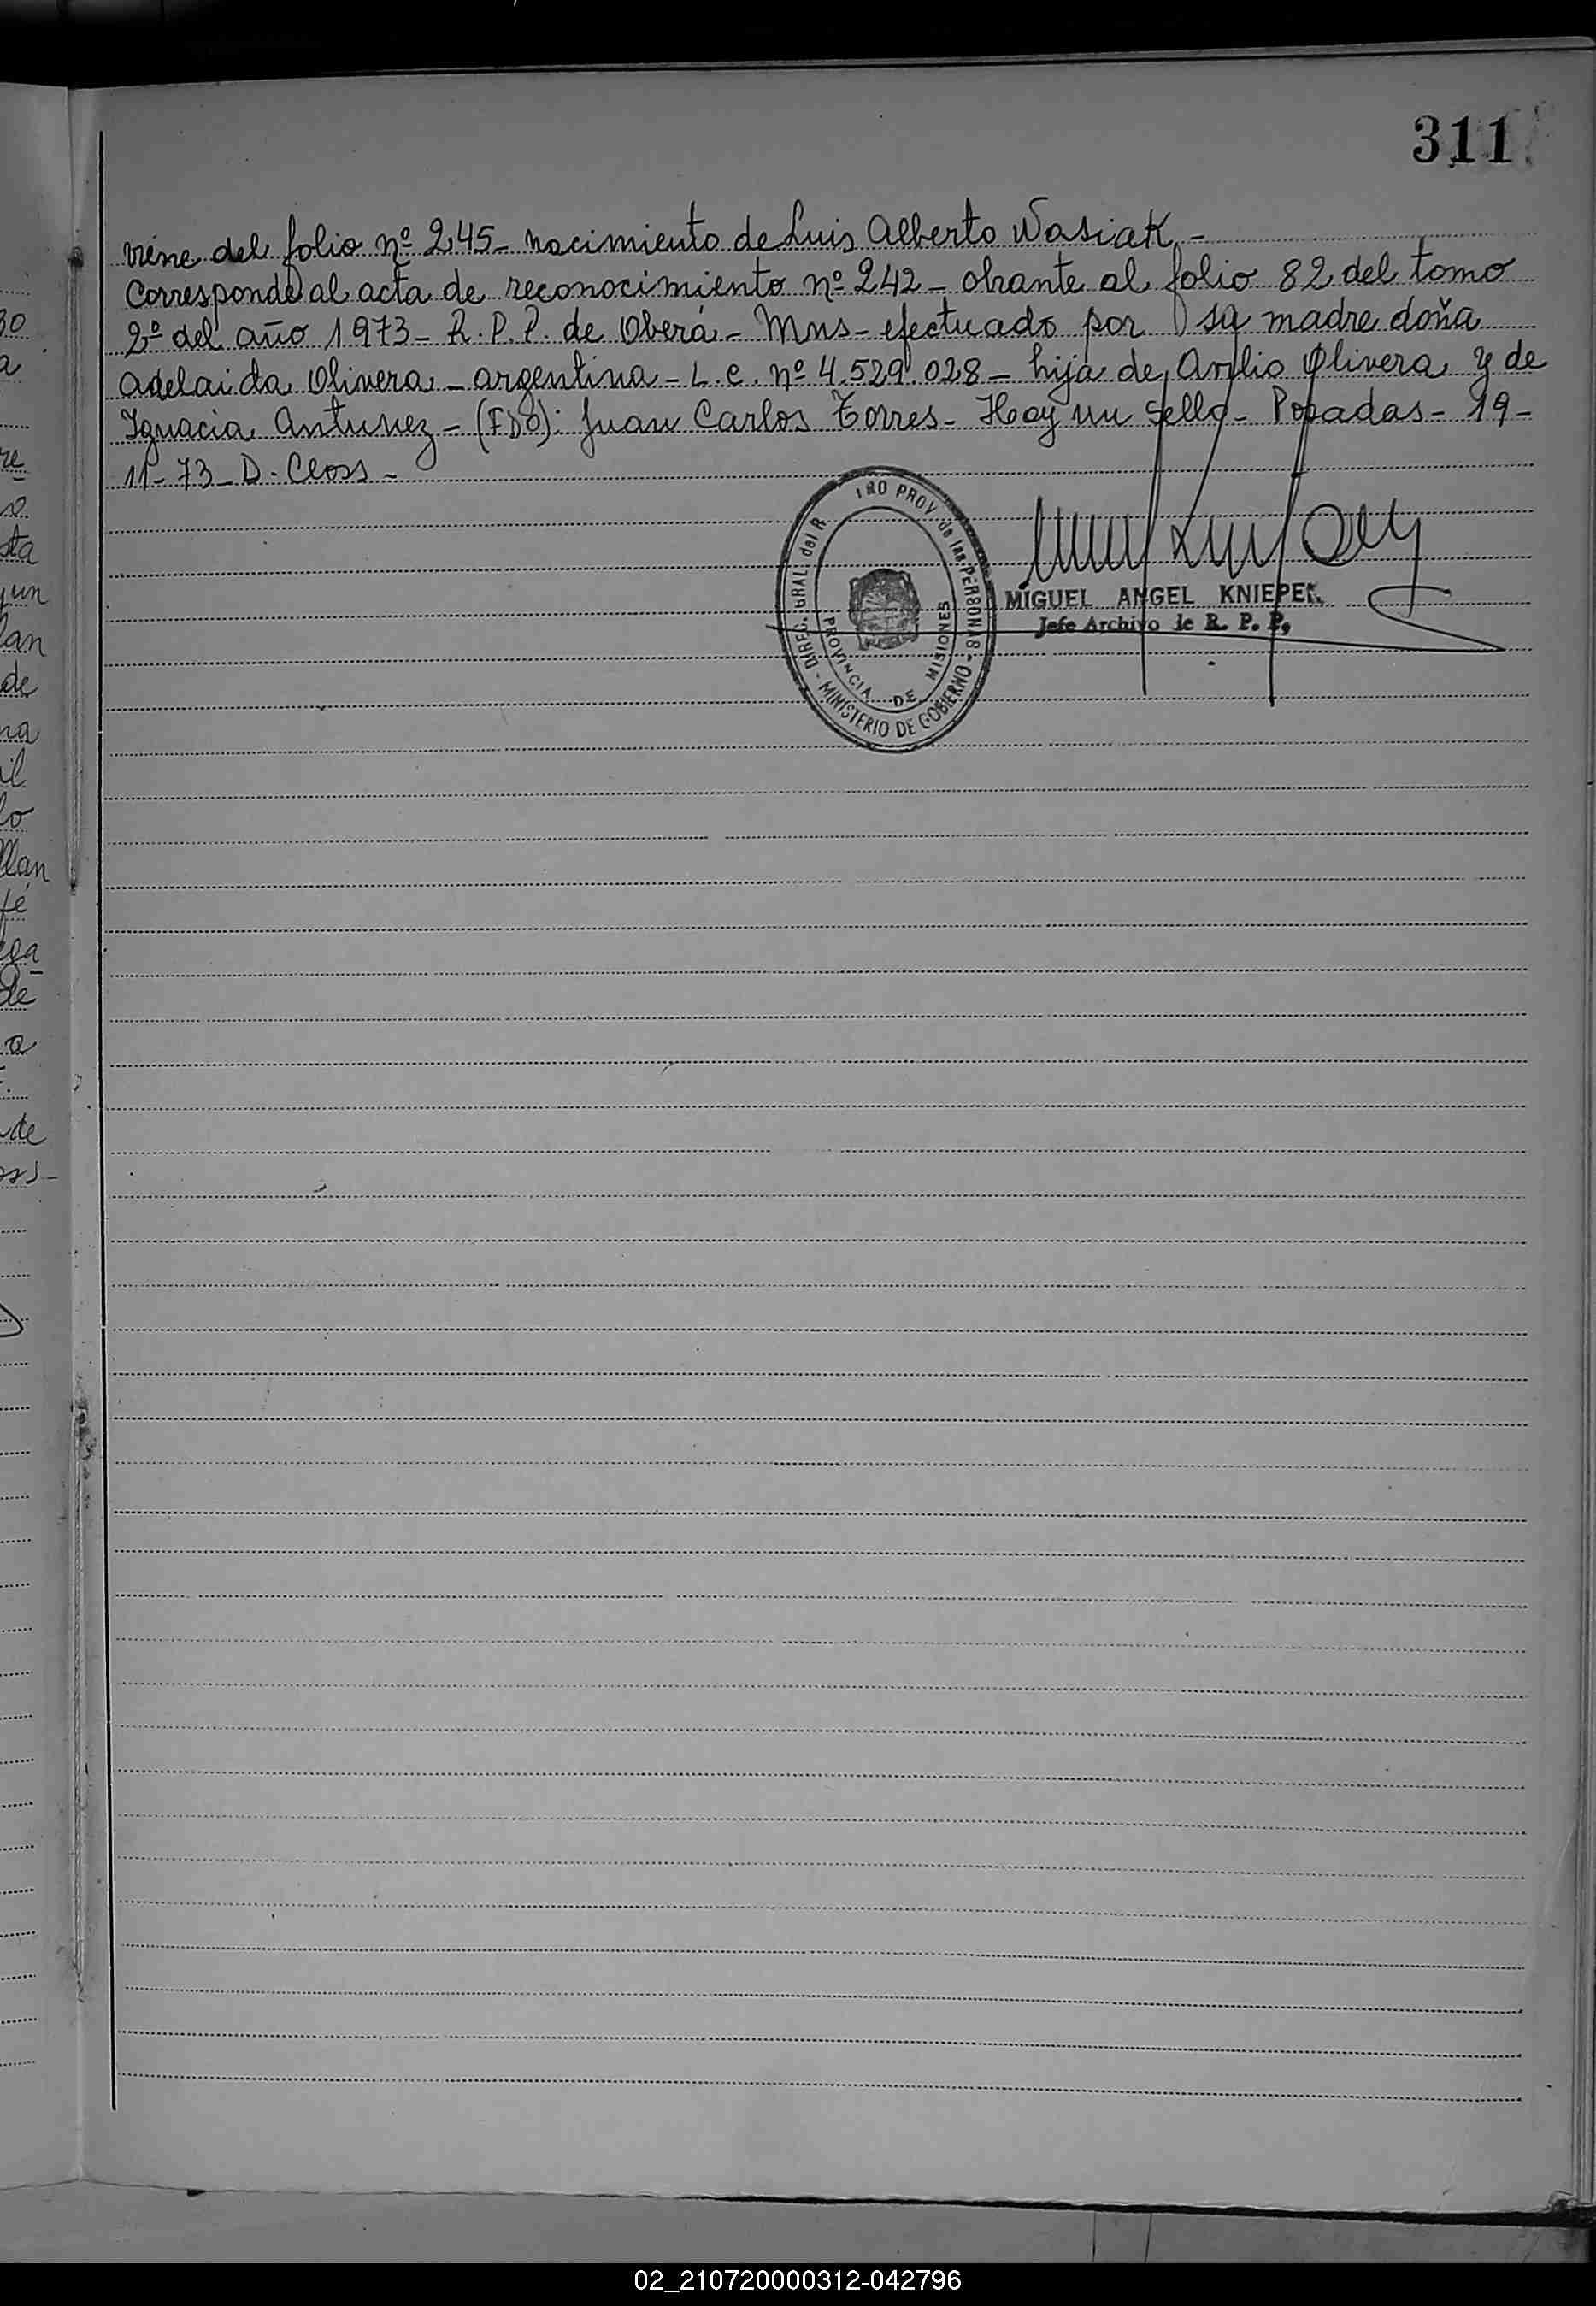 311
viene del folio nº 245 - nacimiento de Luis Alberto Wasiak -
Corresponde al acta de reconocimiento nº 242 - obrante al folio 82 del tomo
2º del año 1973 - R.P.P. de Oberá - Mns - efectuado por su madre doña
Adelaida Olivera - argentina - L.C. nº 4.529.028 - hija de Olivera y de
Ignacia Antunez - (FDO): Juan Carlos Torres - Hay un sello - Posadas - 19 -
11 - 73 - D. Closs -
DIREC. GRAL. del R TRO PROV. de las PERSONAS - MINISTERIO DE GOBIERNO -
PROVINCIA DE MISIONES
MIGUEL ANGEL KNIEPEL
Jefe Archivo de R. P. P.
30
a
re
sta
un
lan
de
na
il
lo
llan
fé
de
a
de
02_210720000312-042796